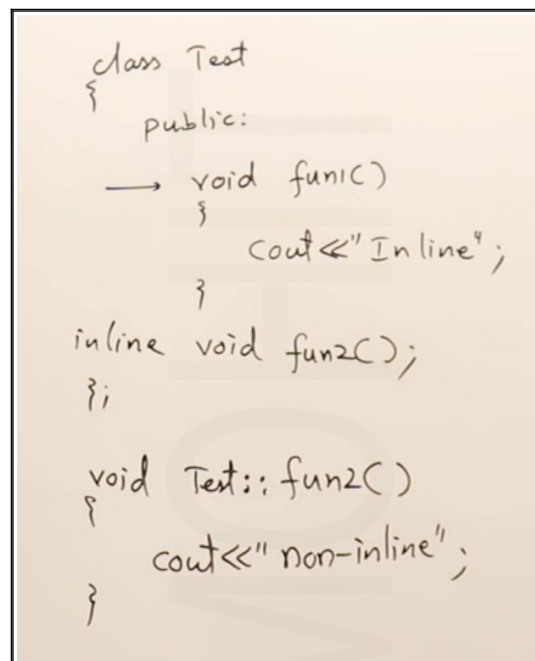 class Test
{
public:
→ void fun1()
{
cout<<"Inline";
}
inline void fun2();
};
void Test::fun2()
{
cout<<"non-inline";
}